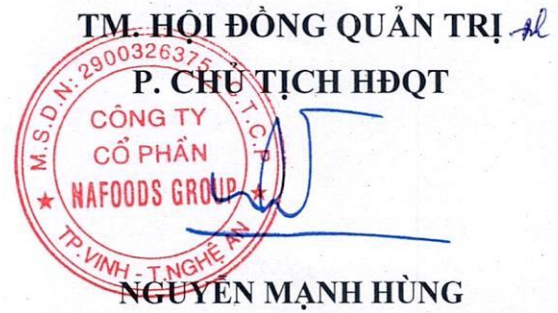 TM. HỘI ĐỒNG QUẢN TRỊ
P. CHỦ TỊCH HĐQT
M.S.D.N: 2900326375 - C.T.C.P
CÔNG TY
CỔ PHẦN
NAFOODS GROUP
TP.VINH - T.NGHỆ AN
NGUYỄN MẠNH HÙNG